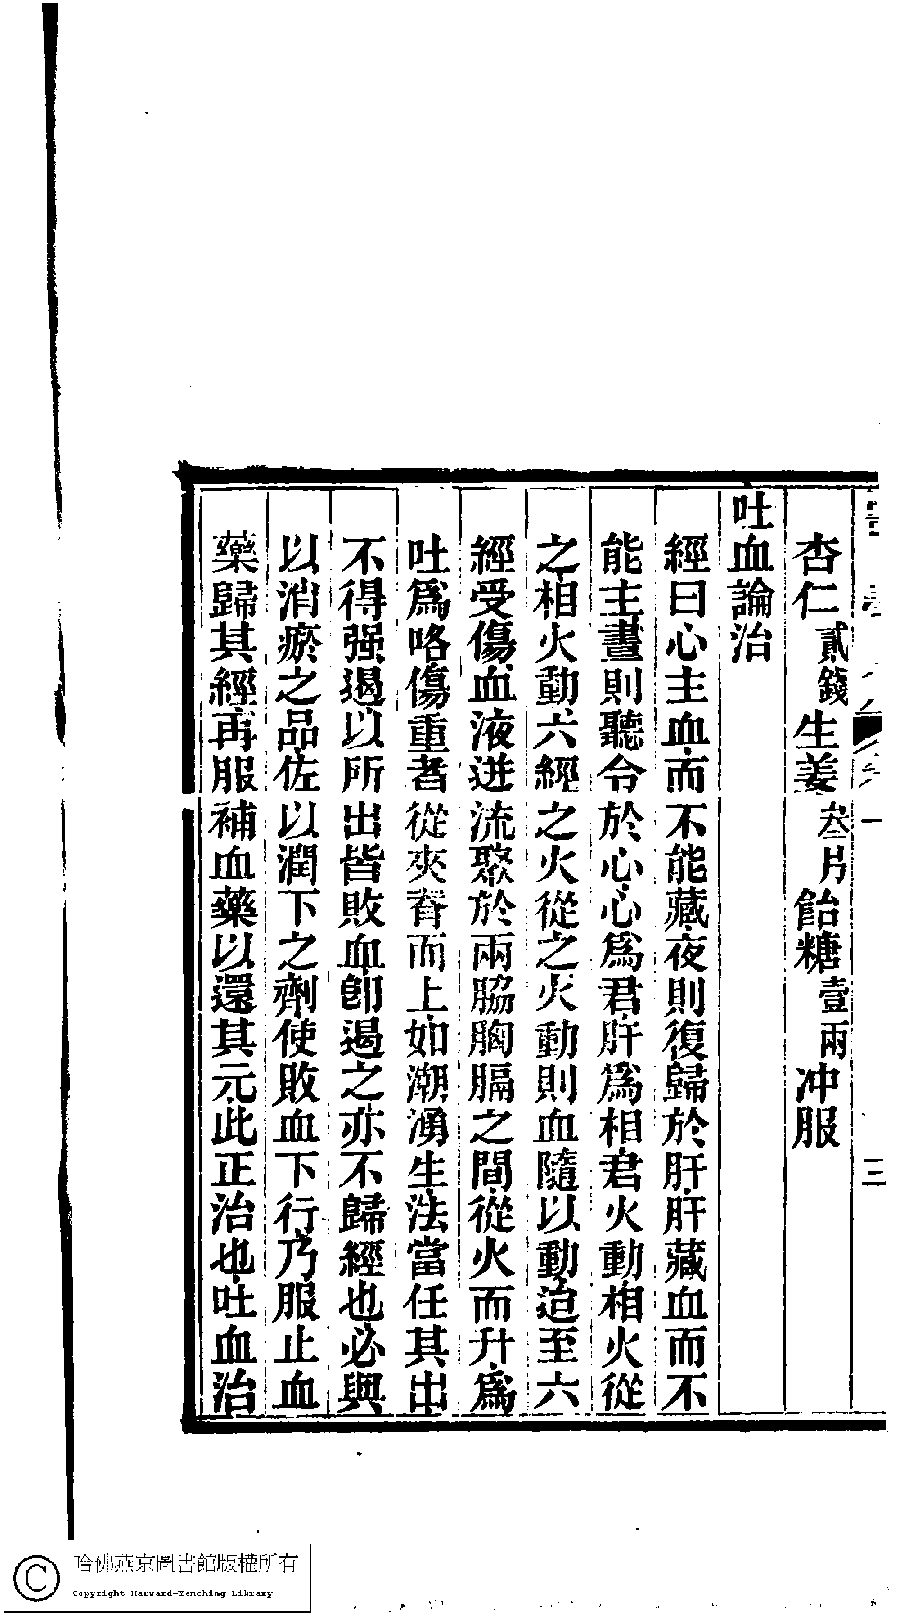 一
三
杏仁貳錢生姜叁片飴糖壹兩冲服
吐血論治
經曰心主血而不能藏夜則復歸於肝肝藏血而不
能主晝則聽令於心心爲君肝爲相君火動相火從
之相火動六經之火從之火動則血隨以動迨至六
經受傷血液迸流聚於兩脇胸膈之間從火而升爲
吐爲咯傷重者從夾脊而上如潮湧生法當任其出
不得强遏以所出皆敗血卽遏之亦不歸經也必與
以消瘀之品佐以潤下之劑使敗血下行乃服止血
藥歸其經再服補血藥以還其元此正治也吐血治
哈佛燕京圖書館版權所有
Copyright Harvard-Yenching Library